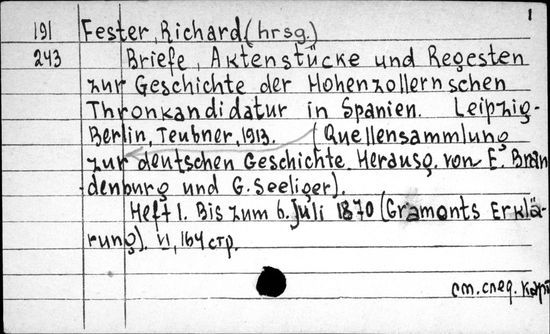 1
191 Fester, Richard (hrsg.)
243 Briefe, Aktenstücke und Regesten
zur Geschichte der Hohenzollernschen
Thronkandidatur in Spanien. Leipzig-
Berlin, Teubner, 1913. (Quellensammlung
zur deutschen Geschichte. Herausg. von E. Bran
denburg und G. Seeliger).
Heft 1. Bis zum 6. Juli 1870 (Gramonts Erklä-
rung). VI, 164 стр.
см. след. карт